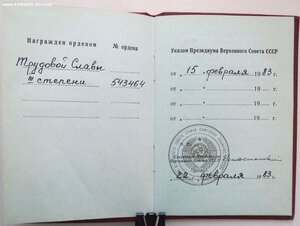 Награжден орденом № ордена
Трудовой Славы
III степени 543464
Указом Президиума Верховного Совета СССР
от „ 15 " февраля 1983
от „ " 19
от „ " 19
от „ " 19
Верховного Совета СССР
„ 22 " февраля 1983